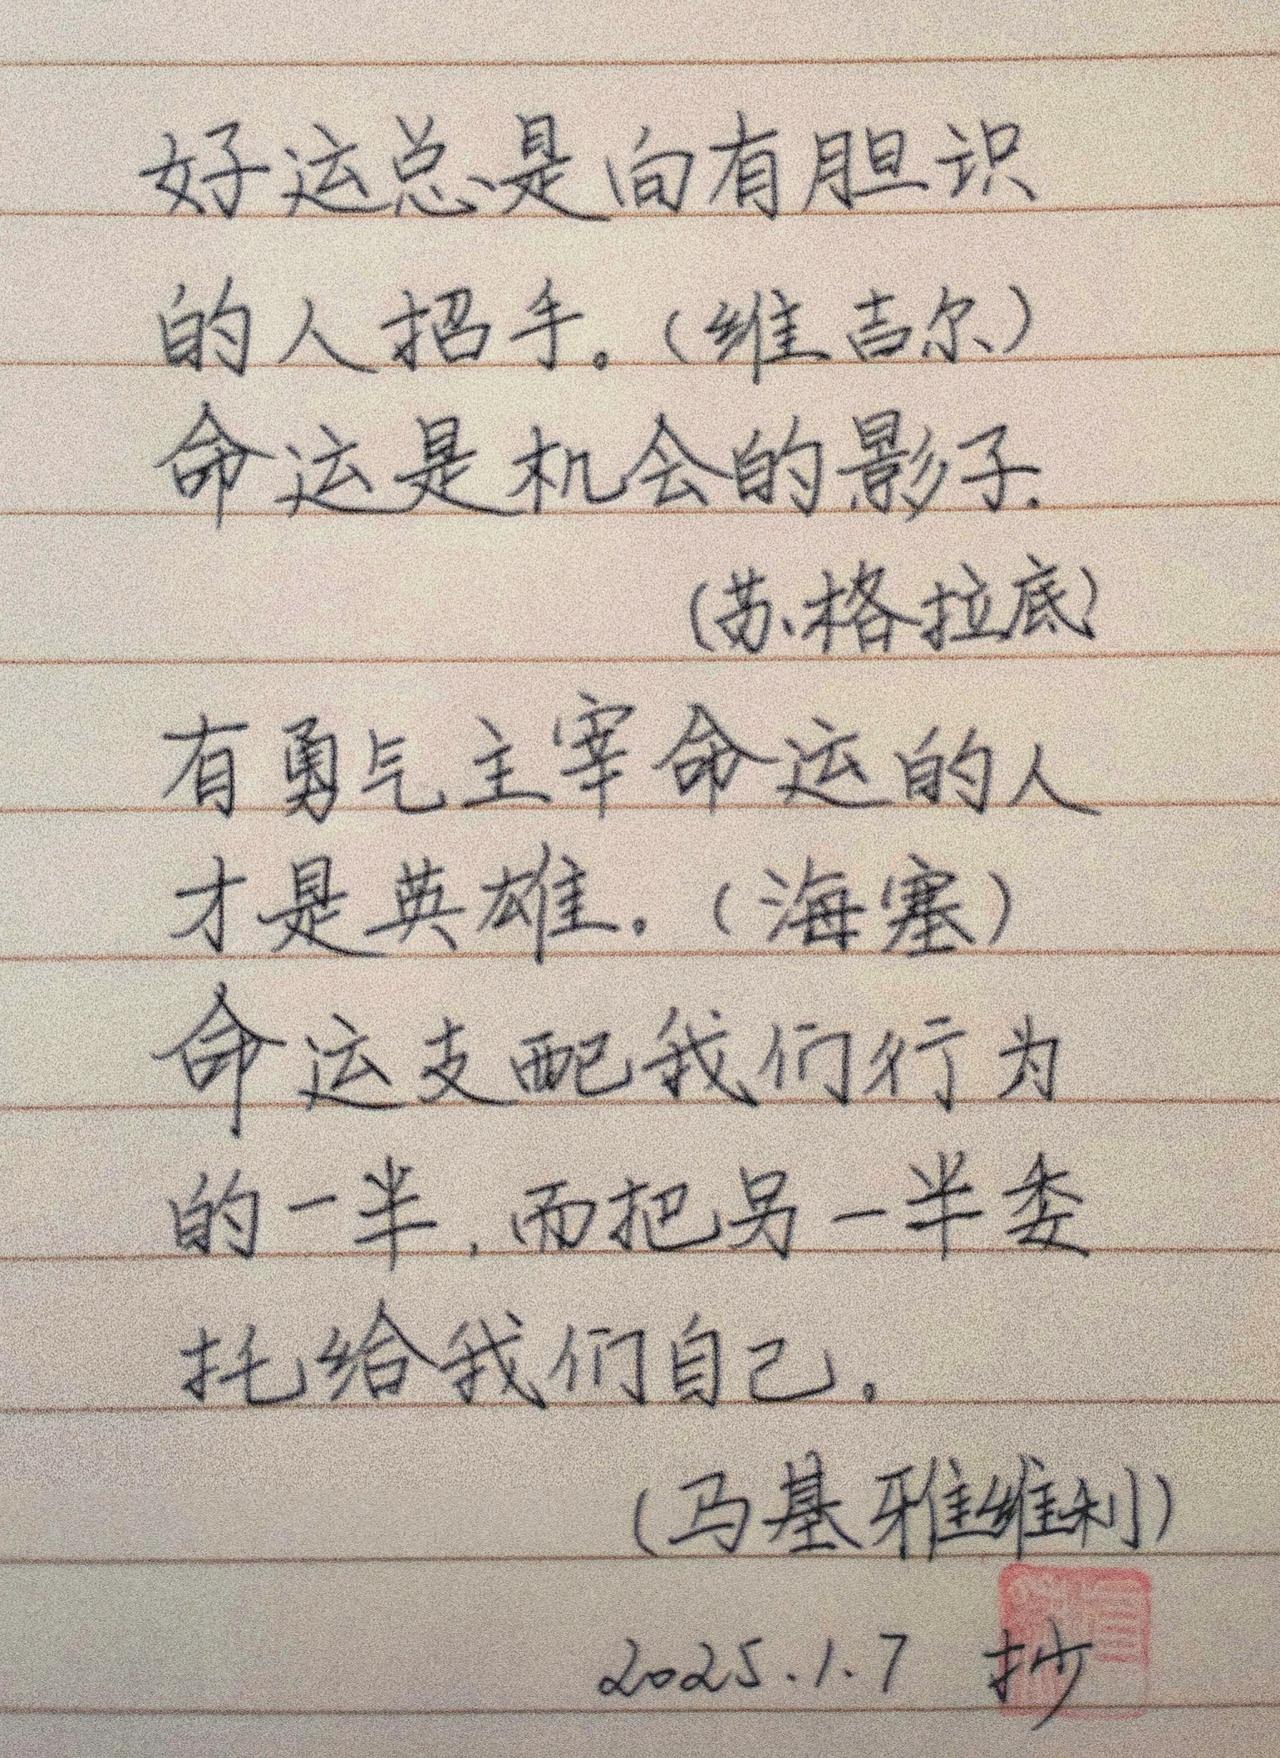 好运总是向有胆识
的人招手。(维吉尔)
命运是机会的影子.
(苏格拉底)
有勇气主宰命运的人
才是英雄。(海塞)
命运支配我们行为
的一半,而把另一半委
托给我们自己。
(马基雅维利)
2025.1.7 抄